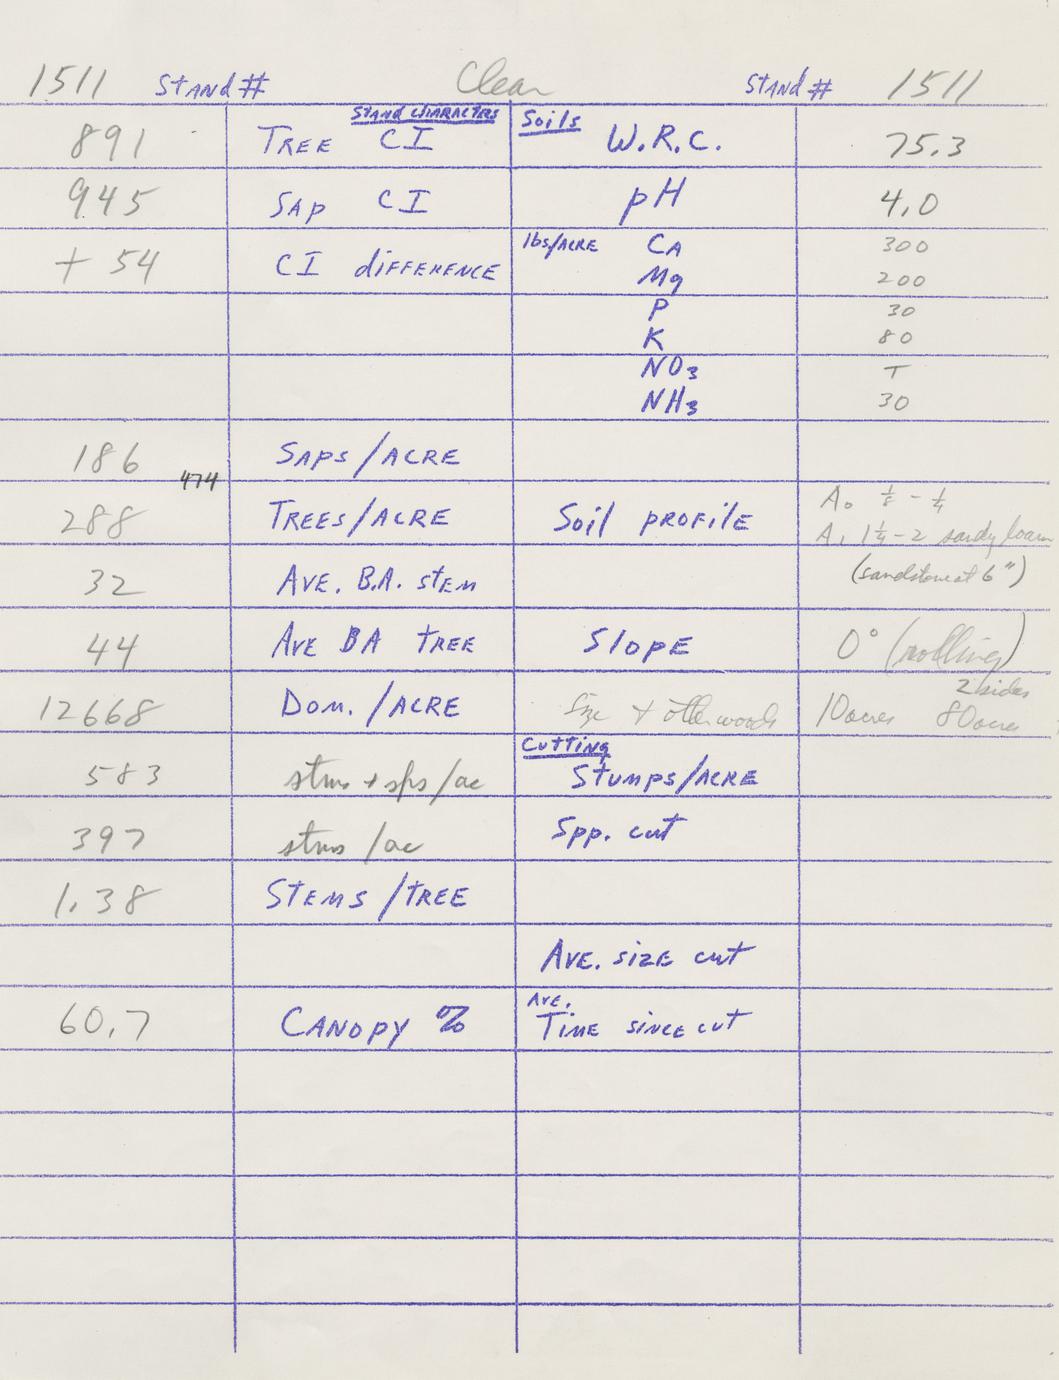 1511 STAND # Clear STAND # 1511
STAND CHARACTERS Soils
891 TREE CI W.R.C. 75.3
945 SAP CI pH 4.0
+ 54 CI diFFERENCE lbs/ACRE CA 300
Mg 200
P 30
K 80
NO3 T
NH3 30
186 SAPS/ACRE
474
288 TREES/ACRE Soil PROFILE A0 1/8 - 1/4
A1 1 1/4 - 2 sandy loam
32 AVE. B.A. STEM (sandstone at 6")
44 AVE BA TREE SlOPE 0° (rolling)
12668 DOM. /ACRE Size + other woods 10 acres 2 sides 80 acres
Cutting
583 stms + sps/ac STUMPS/ACRE
397 stms/ac Spp. cut
1.38 STEMS/TREE
AVE. SIZE CUT
60.7 CANOPY % AVE. TIME SINCE CUT